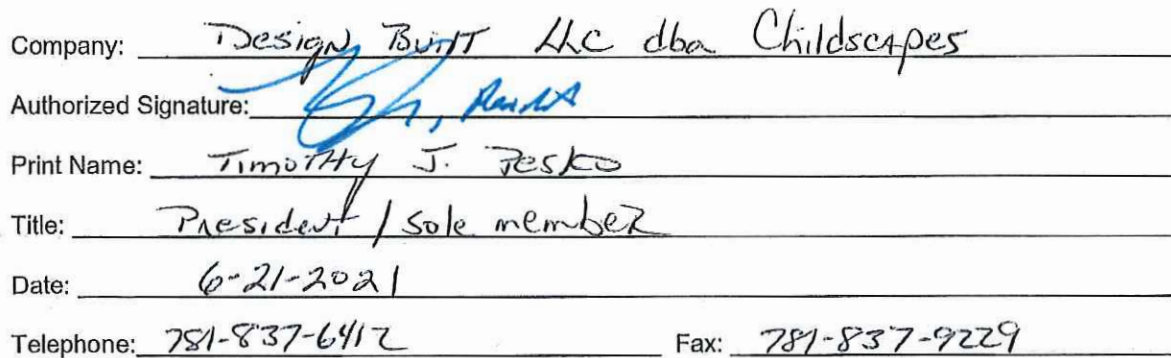 Company: Design Built LLC dba Childscapes
Authorized Signature:
Print Name: Timothy J. Pesko
Title: President / sole member
Date: 6-21-2021
Telephone: 781-837-6412 Fax: 781-837-9229